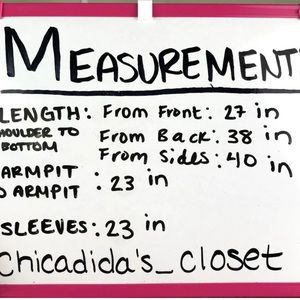 MEASUREMENT
LENGTH: From Front: 27 in
SHOULDER TO From Back: 38 in
BOTTOM From Sides: 40 in
ARMPIT
TO ARMPIT : 23 in
SLEEVES: 23 in
Chicadida's_closet